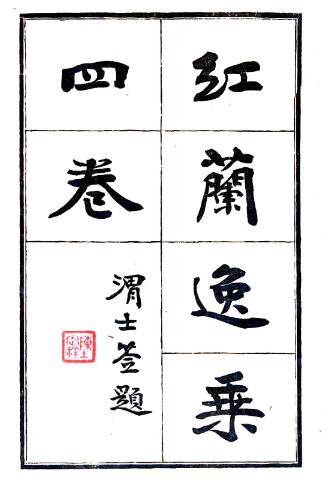 紅蘭逸乘
四卷
渭士签題